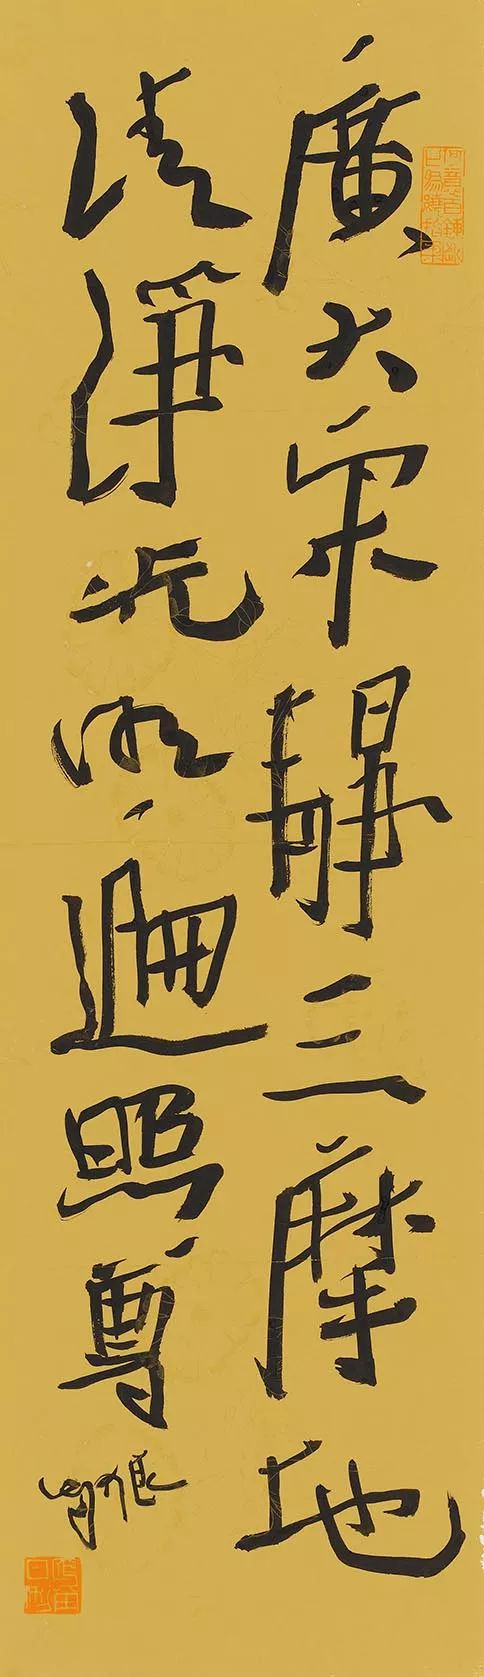 廣大寂靜三摩地
清淨光明遍照尊